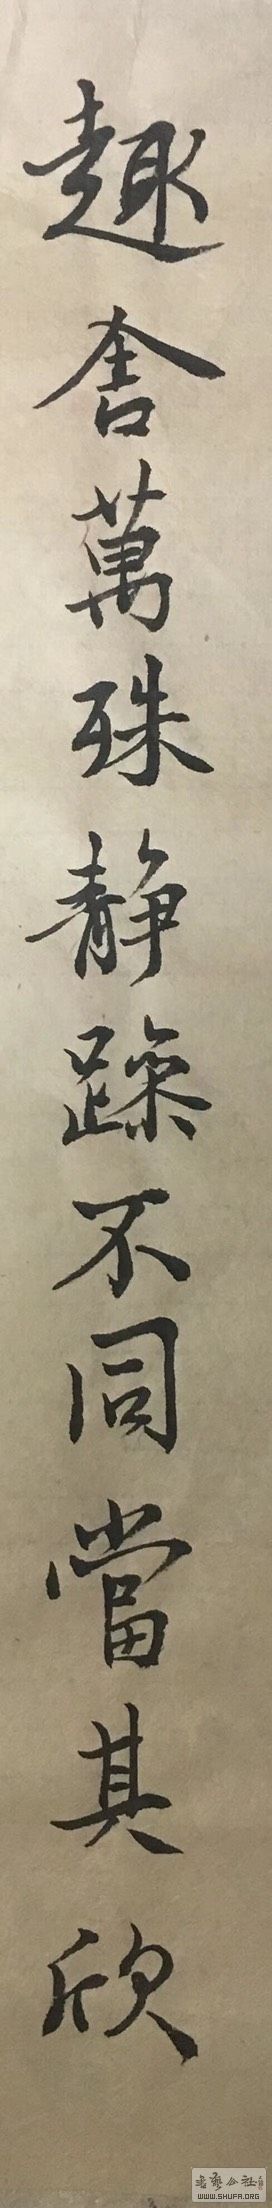 趣舍萬殊静躁不同當其欣
書法公社
WWW.SHUFA.ORG